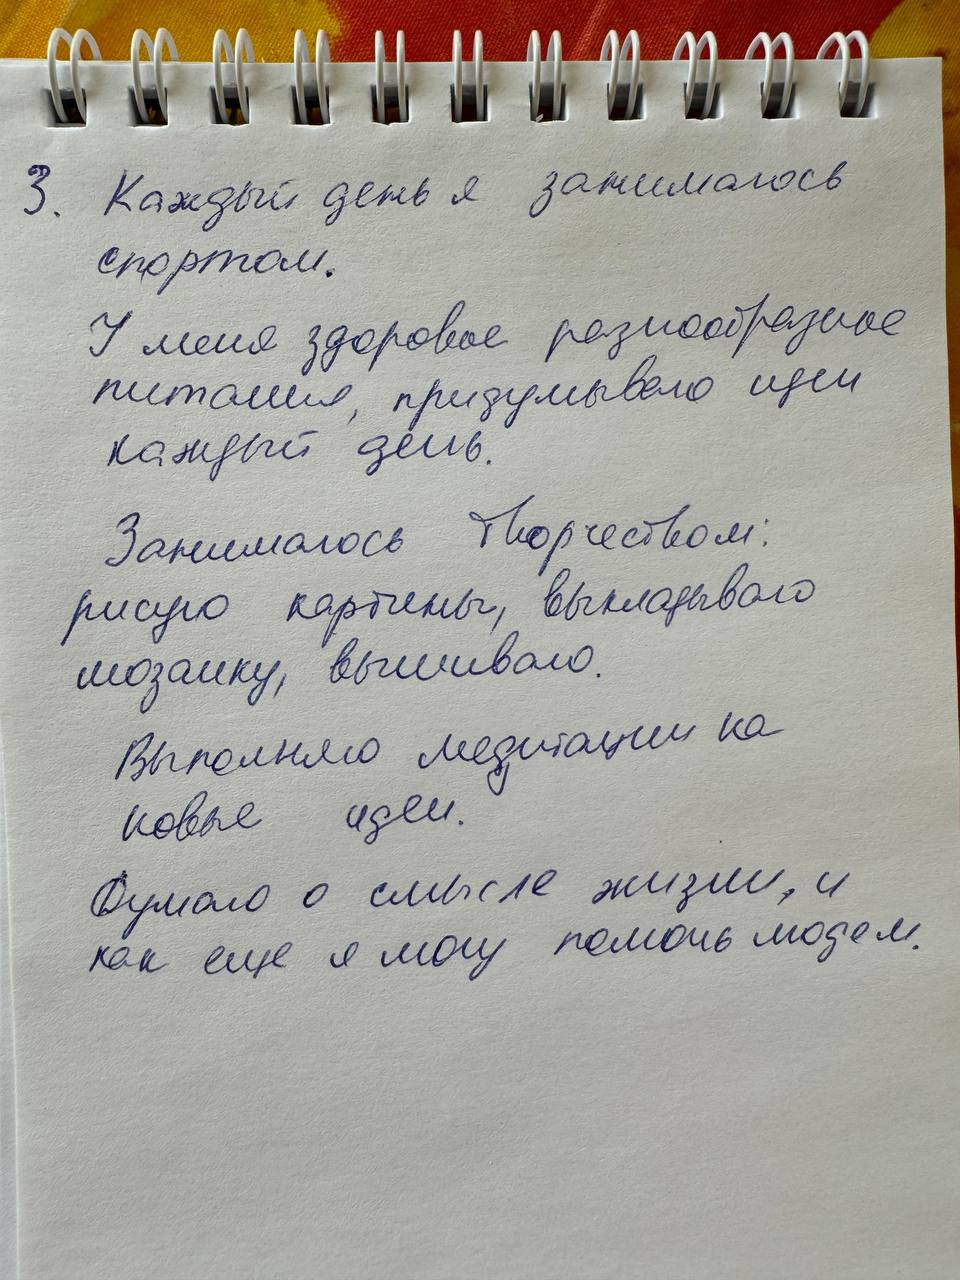 3. Каждый день я занимаюсь
спортом.
У меня здоровое разнообразное
питания, придумываю идеи
каждый день.
Занимаюсь творчеством:
рисую картины, выкладываю
мозаику, вышиваю.
Выполняю медитации на
новые идеи.
Думаю о смысле жизни, и
как еще я могу помочь людем.